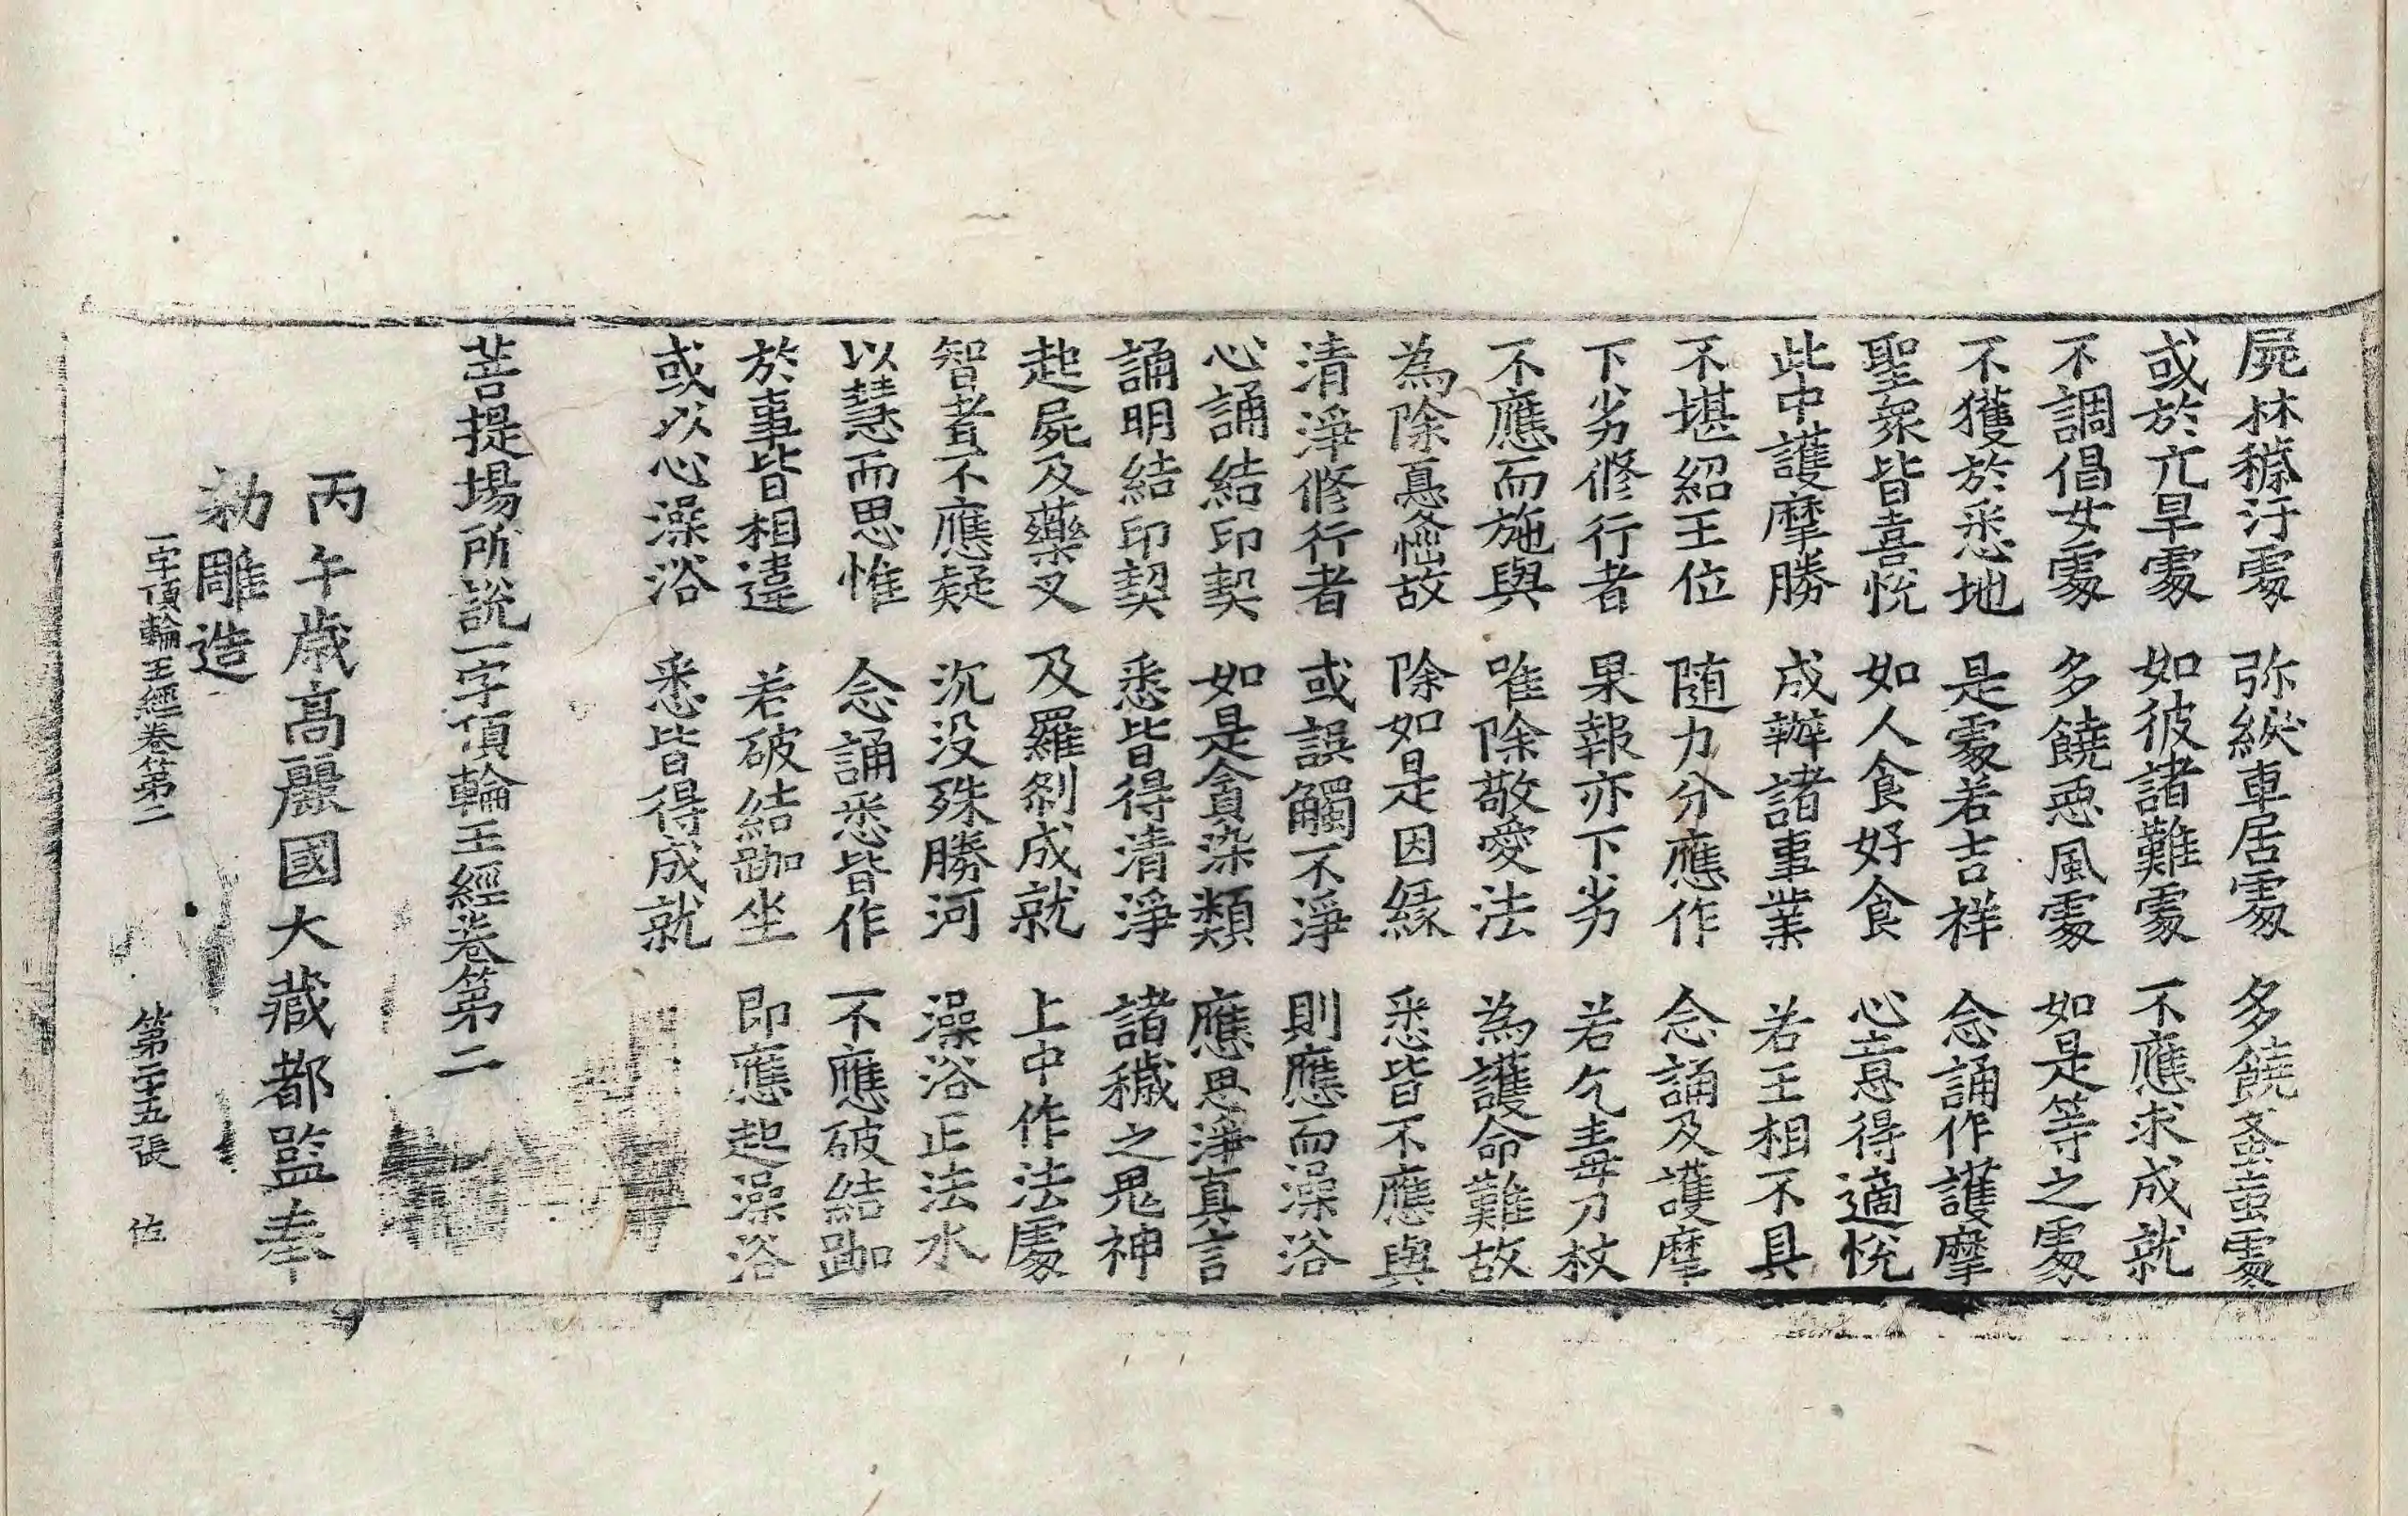 屍林穢汙處 弥綟車居處 多饒蚤蝱處
或於亢旱處 如彼諸難處 不應求成就
不調倡女處 多饒惡風處 如是等之處
不獲於悉地 是處若吉祥 念誦作護摩
聖衆皆喜悅 如人食好食 心意得適悅
此中護摩勝 成辦諸事業 若王相不具
不堪紹王位 随力分應作 念誦及護摩
下劣修行者 果報亦下劣 若乞毒刀杖
不應而施與 唯除敬愛法 為護命難故
為除憂惱故 除如是因緣 悉皆不應與
清淨修行者 或誤觸不淨 則應而澡浴
心誦結印契 如是貪染類 應思淨真言
誦明結印契 悉皆得清淨 諸穢之鬼神
起屍及藥叉 及羅剎成就 上中作法處
智者不應疑 沉没殊勝河 澡浴正法水
以慧而思惟 念誦悉皆作 不應破結跏
於事皆相違 若破結跏坐 即應起澡浴
或以心澡浴 悉皆得成就
菩提場所說一字頂輪王經卷第二
丙午歲高麗國大藏都監奉
勑雕造
一字頂輪王經卷第二 第二十五張 佐